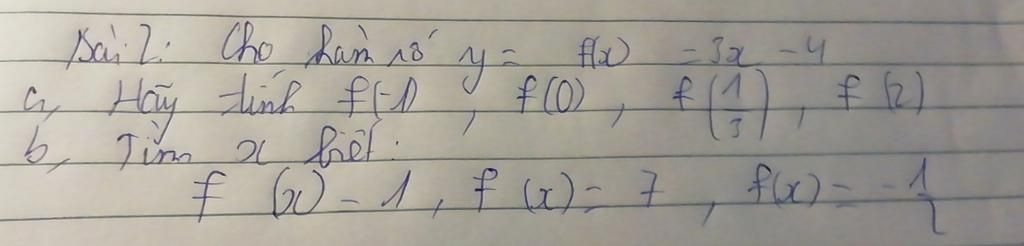 Bài 2: Cho hàm số y = f(x) = 3x - 4
a, Hãy tính f(-1), f(0), f(1/3), f(2)
b, Tìm x biết:
f(x) = 1, f(x) = 7, f(x) = -1/2